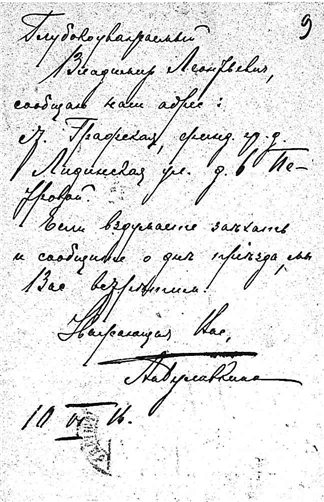 9
Глубокоуважаемый
Владимир Леонтьевич,
сообщаю наш адрес:
Графская,
Лидинская ул. д. 6 Пе-
тровой.
Если вздумаете заехать
и сообщите о дне приезда, мы
Вас встретим.
Уважающая Вас,
10 VI 16.